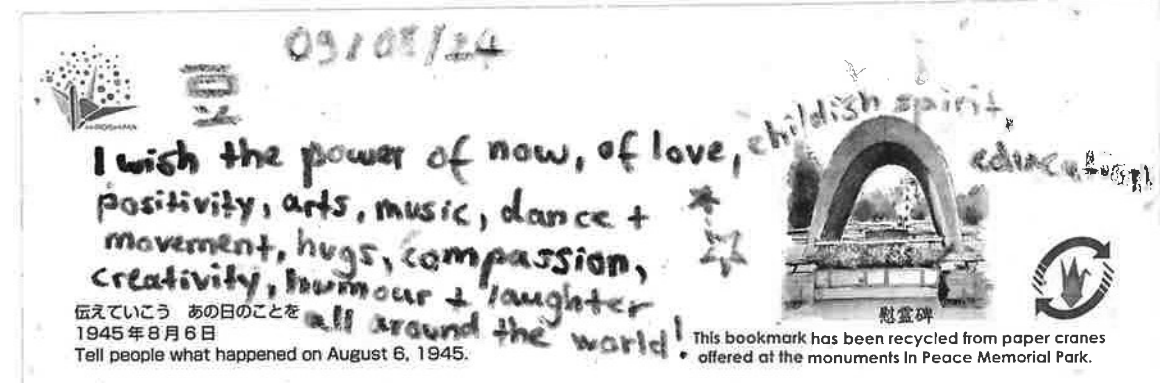 09/08/24
豆
I wish the power of now, of love, childish spirit,
education
positivity, arts, music, dance +
movement, hugs, compassion,
creativity, humour + laughter
all around the world!
伝えていこう あの日のことを
1945年8月6日
Tell people what happened on August 6, 1945.
慰霊碑
This bookmark has been recycled from paper cranes
offered at the monuments in Peace Memorial Park.